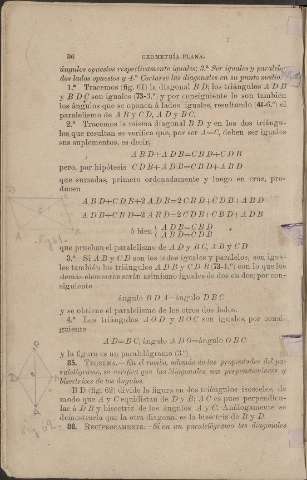 56 GEOMETRÍA PLANA.
ángulos opuestos respectivamente iguales; 3.º Ser iguales y paralelos
dos lados opuestos y 4.º Cortarse las diagonales en su punto medio.
1.º Tracemos (fig. 61) la diagonal B D; los triángulos A D B
y B D C son iguales (73-3.º) y por consiguiente lo son también
los ángulos que se oponen á lados iguales, resultando (41-6.º) el
paralelismo de A B y C D, A D y B C.
2.º Tracemos la misma diagonal B D y en los dos triángu-
los que resultan se verifica que, por ser A=C, deben ser iguales
sus suplementos, es decir,
A B D+A D B=C B D+C D B
pero, por hipótesis C D B+A D B=C B D+A B D
que sumadas, primero ordenadamente y luego en cruz, pro-
ducen
A B D+C D B+2 A D B=2 C B D+C D B+A B D
A D B+C B D+2 A B D=2 C D B+C B D+A D B
ó bien A D B=C B D
A B D=C D B
que prueban el paralelismo de A D y B C, A B y C D
3.º Si A B y C D son los lados iguales y paralelos, son igua-
les también los triángulos A D B y C D B (73-1.º) con lo que los
demás elementos serán asimismo iguales de dos en dos; por con-
siguiente
ángulo B D A=ángulo D B C
y se obtiene el paralelismo de los otros dos lados.
4.º Los triángulos A O D y B O C son iguales, por consi-
guiente
A D=B C, ángulo A D O=ángulo O B C
y la figura es un paralelogramo (3.º)
85. TEOREMA.—En el rombo, además de las propiedades del pa-
ralelógramo, se verifica que las diagonales son perpendiculares y
bisectrices de los ángulos.
B D (fig. 62) divide la figura en dos triángulos isósceles, de
modo que A y C equidistan de D y B; A C es pues perpendicu-
lar á D B y bisectriz de los ángulos A y C. Análogamente se
demostraría que la otra diagonal es la bisectriz de B y D.
86. RECÍPROCAMENTE.—Si en un paralelógramo las diagonales